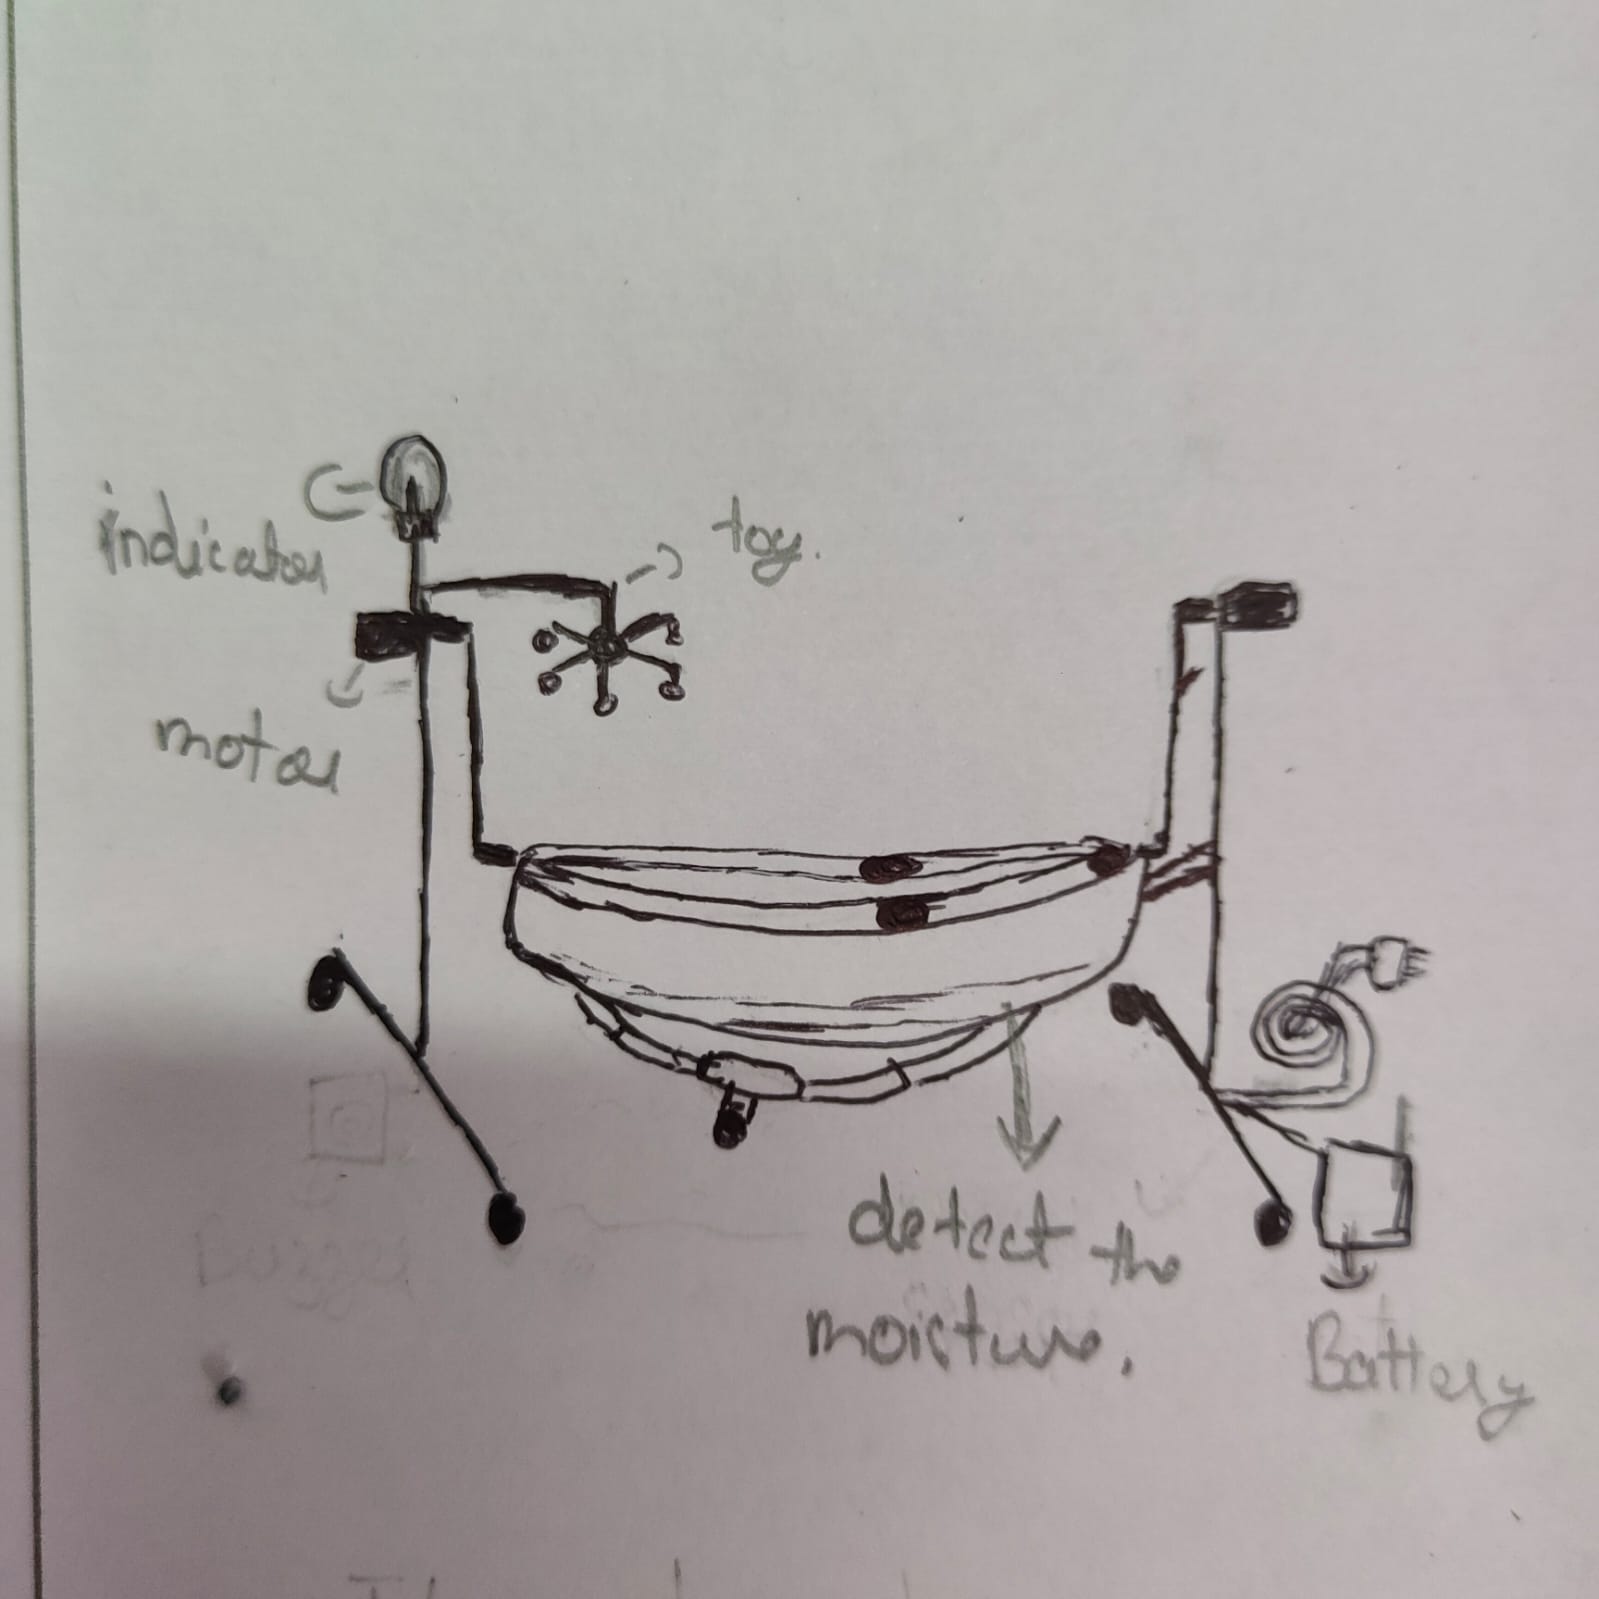 indicator
toy.
motor
detect the
moisture.
Battery